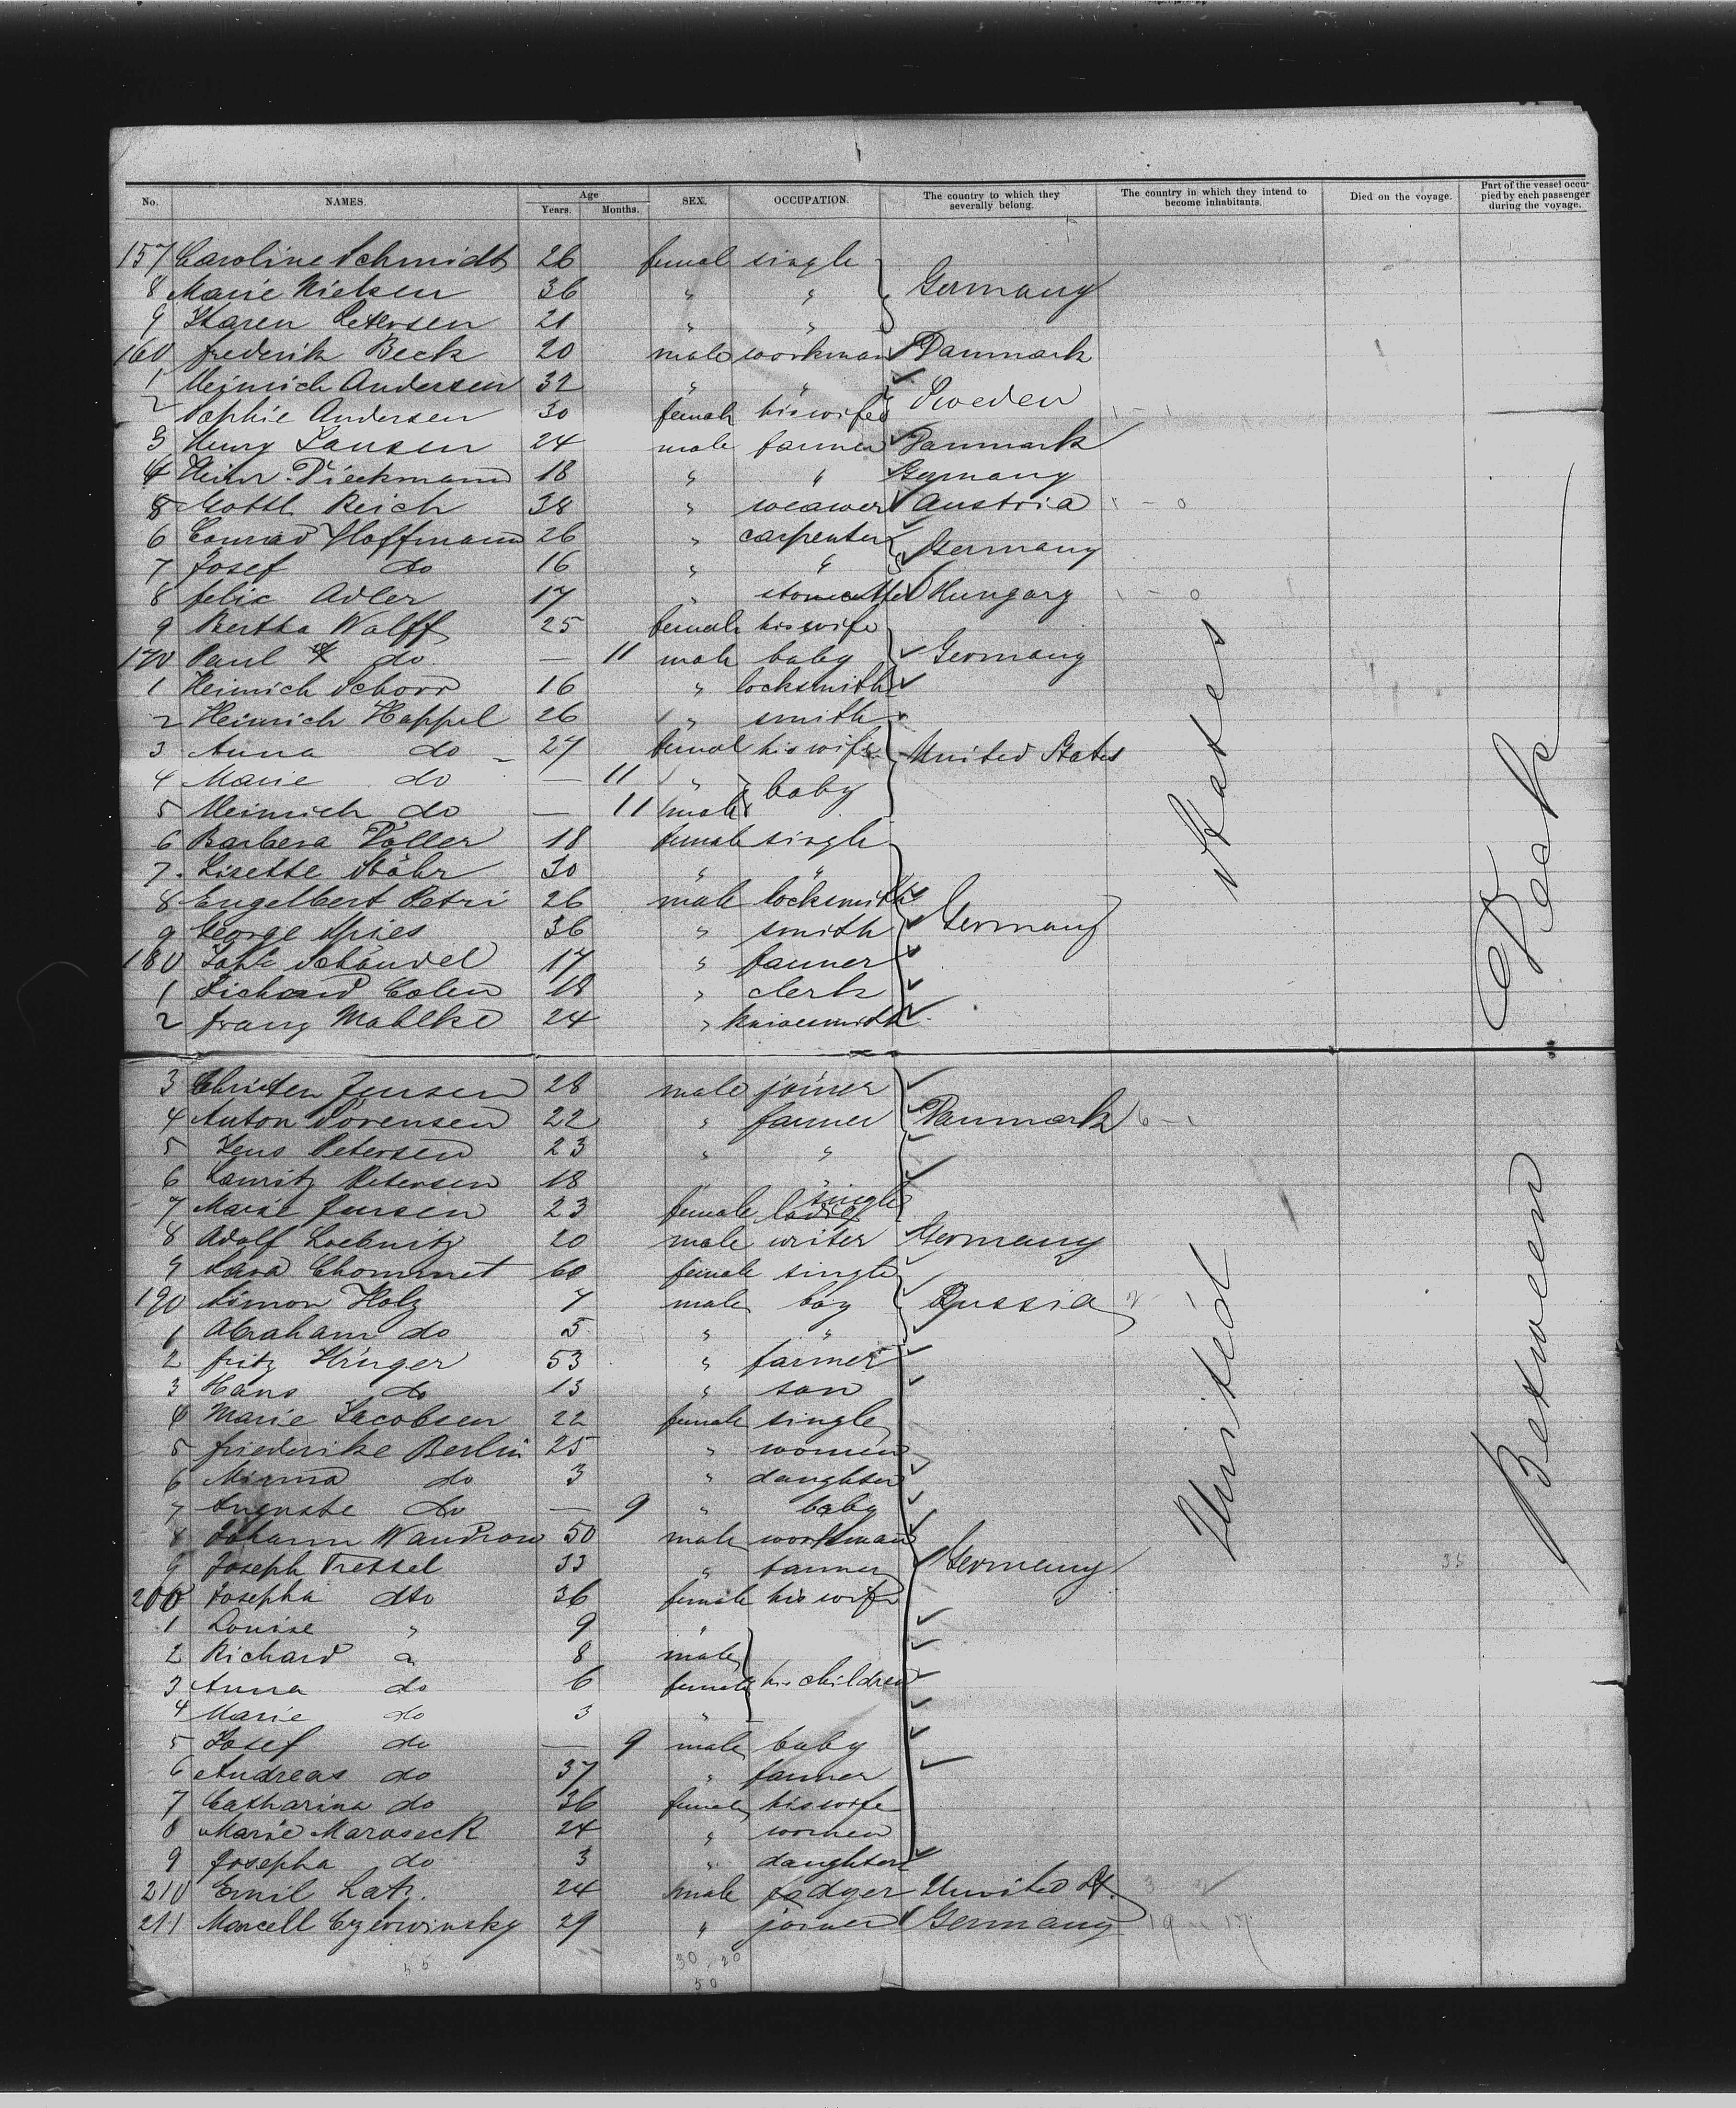 No. NAMES. Age Years. Months. SEX. OCCUPATION. The country to which they severally belong. The country in which they intend to become inhabitants. Died on the voyage. Part of the vessel occupied by each passenger during the voyage.
157 Caroline Schmidt 26 femal single
8 Marie Nielsen 36 " " Germany
9 Karen Petersen 21 " "
160 frederik Beck 20 male workman Danmark
1 Heinrich Andersen 32 " "
2 Sophie Andersen 30 female his wife Sweden
3 Henry Jansen 24 male farmer Danmark
4 Heinr. Dieckmann 18 " " Germany
5 Gottl. Reich 38 " weawer Austria
6 Conrad Hoffmann 26 " carpenter Germany
7 Josef do 16 " "
8 felix Adler 17 " stonecutter Hungary
9 Bertha Wolff 25 female his wife
170 Paul do — 11 male baby Germany
1 Heinrich Schorr 16 " locksmith
2 Heinrich Happel 26 " smith
3 Anna do 27 femal his wife United States
4 Marie do — 11 " baby
5 Heinrich do — 11 male
6 Barbera Döller 18 female single
7 Lisette Stöhr 30 " "
8 Engelbert Petri 26 male locksmith
9 George Spies 36 " smith Germany
180 Joh. Schaudel 17 " farmer
1 Richard Colen 18 " clerk
2 franz Mahlke 24 "
3 Christen Jensen 28 male joiner
4 Anton Sörensen 22 " farmer Danmark
5 Jens Petersen 23 " "
6 Lauritz Petersen 18
7 Marie Jensen 23 female single
8 Adolf Loebnitz 20 male writer Germany
9 Sara Chommet 60 female single
190 Simon Holz 7 male boy Russia
1 Abraham do 5 " "
2 fritz Krüger 53 " farmer
3 Hans do 13 " son
4 Marie Jacobsen 22 female single
5 friederike Berlin 25 " women
6 Minna do 3 " daughter
7 Auguste do — 9 " baby
8 Johann Wandrow 50 male workman
9 Joseph Tressel 33 " farmer Germany
200 Josepha dto 36 female his wife
1 Louise " 9 "
2 Richard " 8 male
3 Anna do 6 female his children
4 Marie do 3 "
5 Josef do — 9 male baby
6 Andreas do 37 " farmer
7 Catharina do 36 female his wife
8 Marie Maroseck 24 " women
9 Josepha do 3 " daughter
210 Emil Latz. 24 male United St.
211 Marcell Czerwinsky 29 " joiner Germany
United States
Between Deck
55 30 20
50